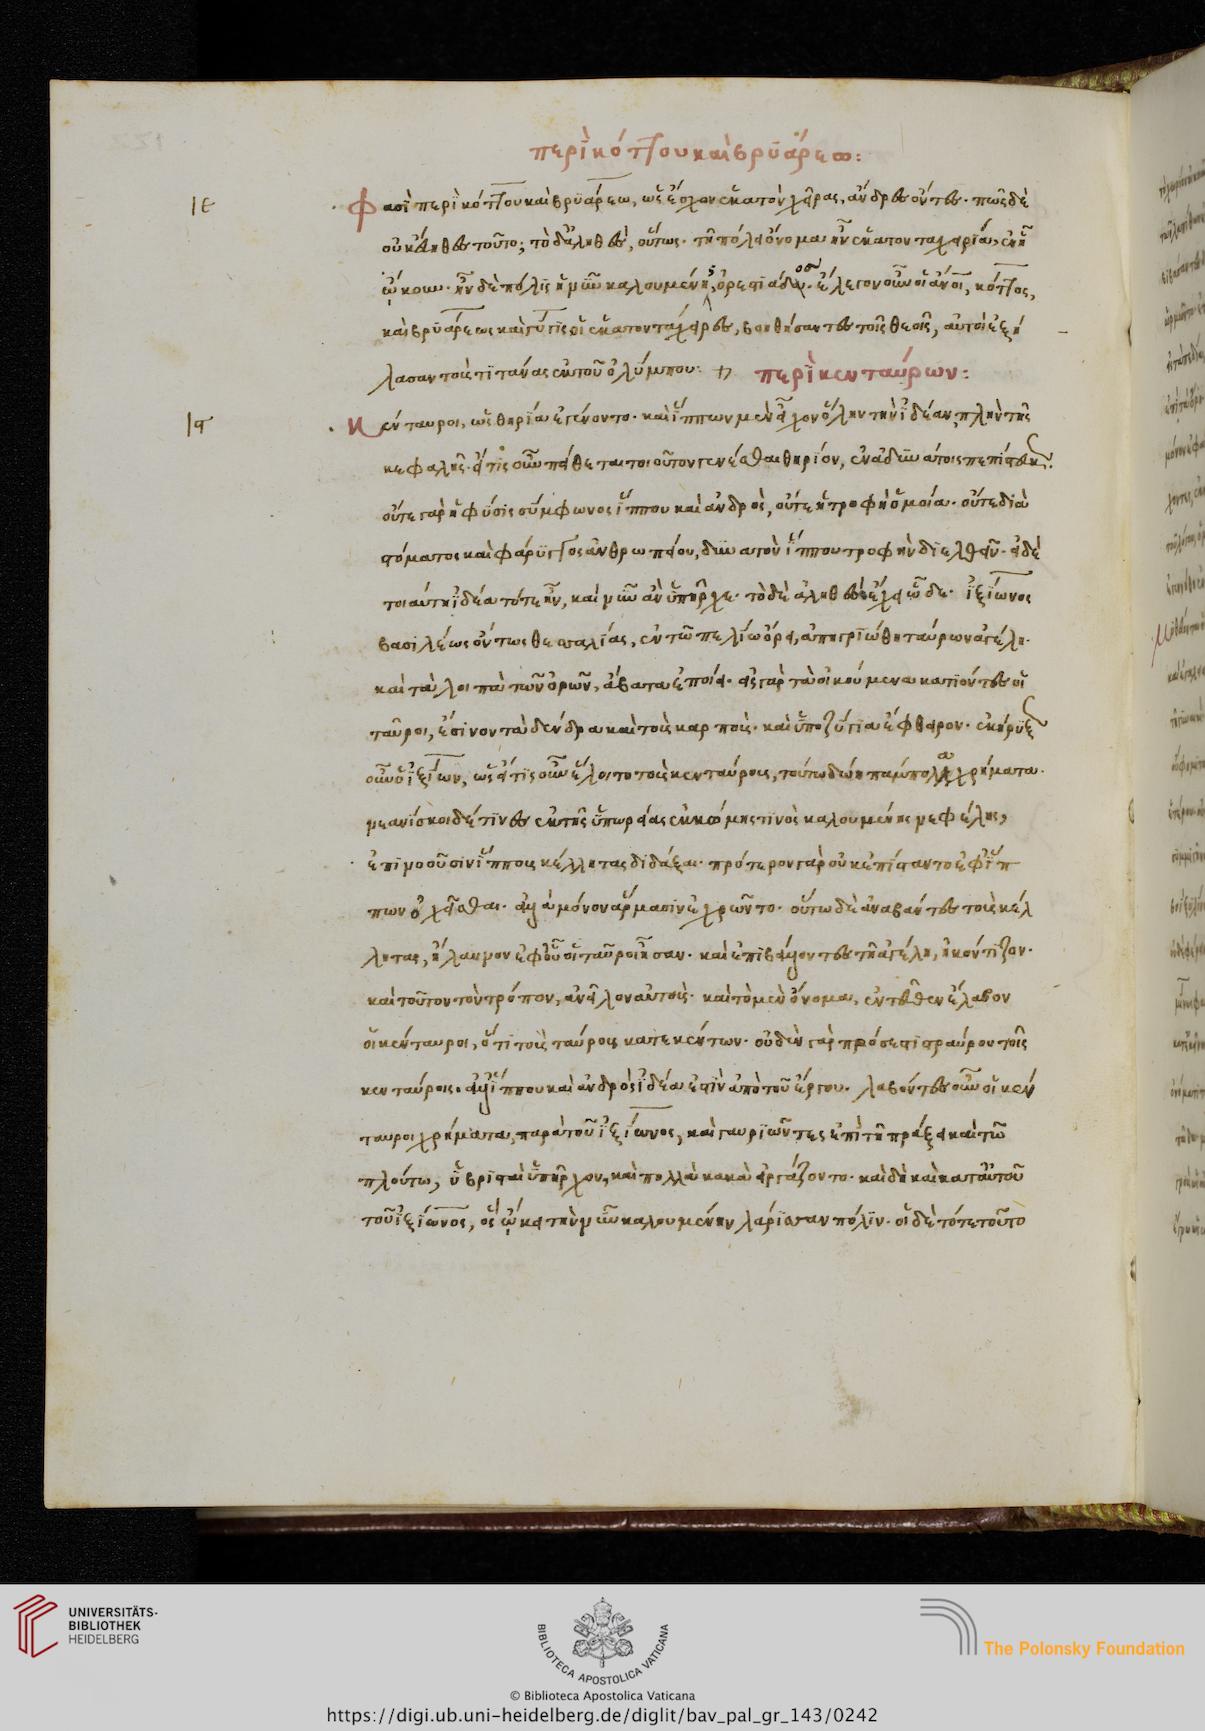 περὶ κόττου καὶ βρϋάρεω:
ιε
Φασὶ περὶ κόττου καὶ βρϋάρεω, ὡς ἔσχον ἑκατὸν χεῖρας, ἄνδρες ὄντες. πῶς δὲ
οὐκ εὔηθες τοῦτο; τὸ δ' ἀληθὲς, οὕτως. τῆ πόλει ὄνομα ἦν ἑκατονταχειρία, ἐν ἧ
ὤκουν. ἦν δὲ πόλις ἡ νῦν καλουμένη, ὀρεστιάδος. ἔλεγον οὖν οἱ ἄνοι, κόττος,
καὶ βρϋάρεως καὶ γύγις οἱ ἑκατονταχειρες, βοηθήσαντες τοῖς θεοῖς, αὐτοὶ ἐξή
λασαν τοὺς τϊτάνας ἐκ τοῦ ὀλύμπου: περὶ κενταύρων:
ις
Κένταυροι, ὡς θηρία ἐγένοντο. καὶ ἵππων μὲν εἶχον ὅλην τὴν ἰδέαν, πλὴν τῆς
κεφαλῆς. εἴ τις οὖν πείθεται τοιοῦτον γενέσθαι θηρίον, ἐν ἀδυνάτοις πεπίστευκεν.
οὔτε γὰρ ἡ φύσις σύμφωνος ἵππου καὶ ἀνδρὸς, οὔτε ἡ τροφὴ ὁμοία. οὔτε διὰ
στόματος καὶ φάρϋγγος ἀνθρωπείου, δυνατὸν ἵππου τροφὴν διελθεῖν. εἰ δὲ
τοιαύτη ἰδέα τότε ἦν, καὶ νῦν ἂν ὑπῆρχε. τὸ δὲ ἀληθὲς ἔχει ὧδε. ἰξίωνος
βασιλέως ὄντος θεσσαλίας, ἐν τῶ πελίω ὄρει, ἀπηγριώθη ταύρων ἀγέλη.
καὶ τὰ λοιπὰ τῶν ὀρῶν, ἄβατα ἐποίει. εἰς γὰρ τὰ οἰκούμενα κατϊόντες οἱ
ταῦροι, ἔσινον τὰ δένδρα καὶ τοὺς καρποὺς. καὶ ὑποζύγια ἔφθειρον. ἐκήρυξεν
οὖν ὁ ἰξίων, ὡς εἴ τις οὖν ἕλοιτο τοὺς κενταύρους, τούτω δώη πάμπολλα χρήματα.
νεανίσκοι δέ τινες ἐκ τῆς ὑπωρείας ἐκ κώμης τινὸς καλουμένης νεφέλης,
ἐπινοοῦσιν ἵππους κέλλητας διδάξαι. πρότερον γὰρ οὐκ ἠπίσταντο ἐφ' ἵπ
πων ὀχεῖσθαι. ἀλλὰ μόνον ἅρμασιν ἐχρῶντο. οὕτω δὲ ἀναβάντες τοὺς κέλ
λητας, ἤλαυνον ἐφ' οὗ οἱ ταῦροι ἦσαν. καὶ ἐπιβάλλοντες τῆ ἀγέλη, ἠκόντιζον.
καὶ τοῦτον τὸν τρόπον, ἀνεῖλον αὐτοὺς. καὶ τὸ μὲν ὄνομα, ἐντεῦθεν ἔλαβον
οἱ κένταυροι, ὅτι τοὺς ταύρους κατεκέντων. οὐδὲν γὰρ πρόσεστι ταύρου τοῖς
κενταύροις. ἀλλ' ἵππου καὶ ἀνδρὸς ἰδέα ἐστὶν ἀπὸ τοῦ ἔργου. λαβόντες οὖν οἱ κέν
ταυροι χρήματα, παρὰ τοῦ ἰξίωνος, καὶ γαυριῶντες ἐπὶ τῆ πράξει καὶ τῶ
πλούτω, ὑβρισταὶ ὑπῆρχον, καὶ πολλὰ κακὰ εἰργάζοντο. καὶ δὴ καὶ κατ' αὐτοῦ
τοῦ ἰξίωνος, ὃς ὤκει τὴν νῦν καλουμένην λάρισσαν πόλιν. οἱ δὲ τότε τοῦτο
UNIVERSITÄTS-
BIBLIOTHEK
HEIDELBERG
BIBLIOTECA APOSTOLICA VATICANA
The Polonsky Foundation
© Biblioteca Apostolica Vaticana
https://digi.ub.uni-heidelberg.de/diglit/bav_pal_gr_143/0242